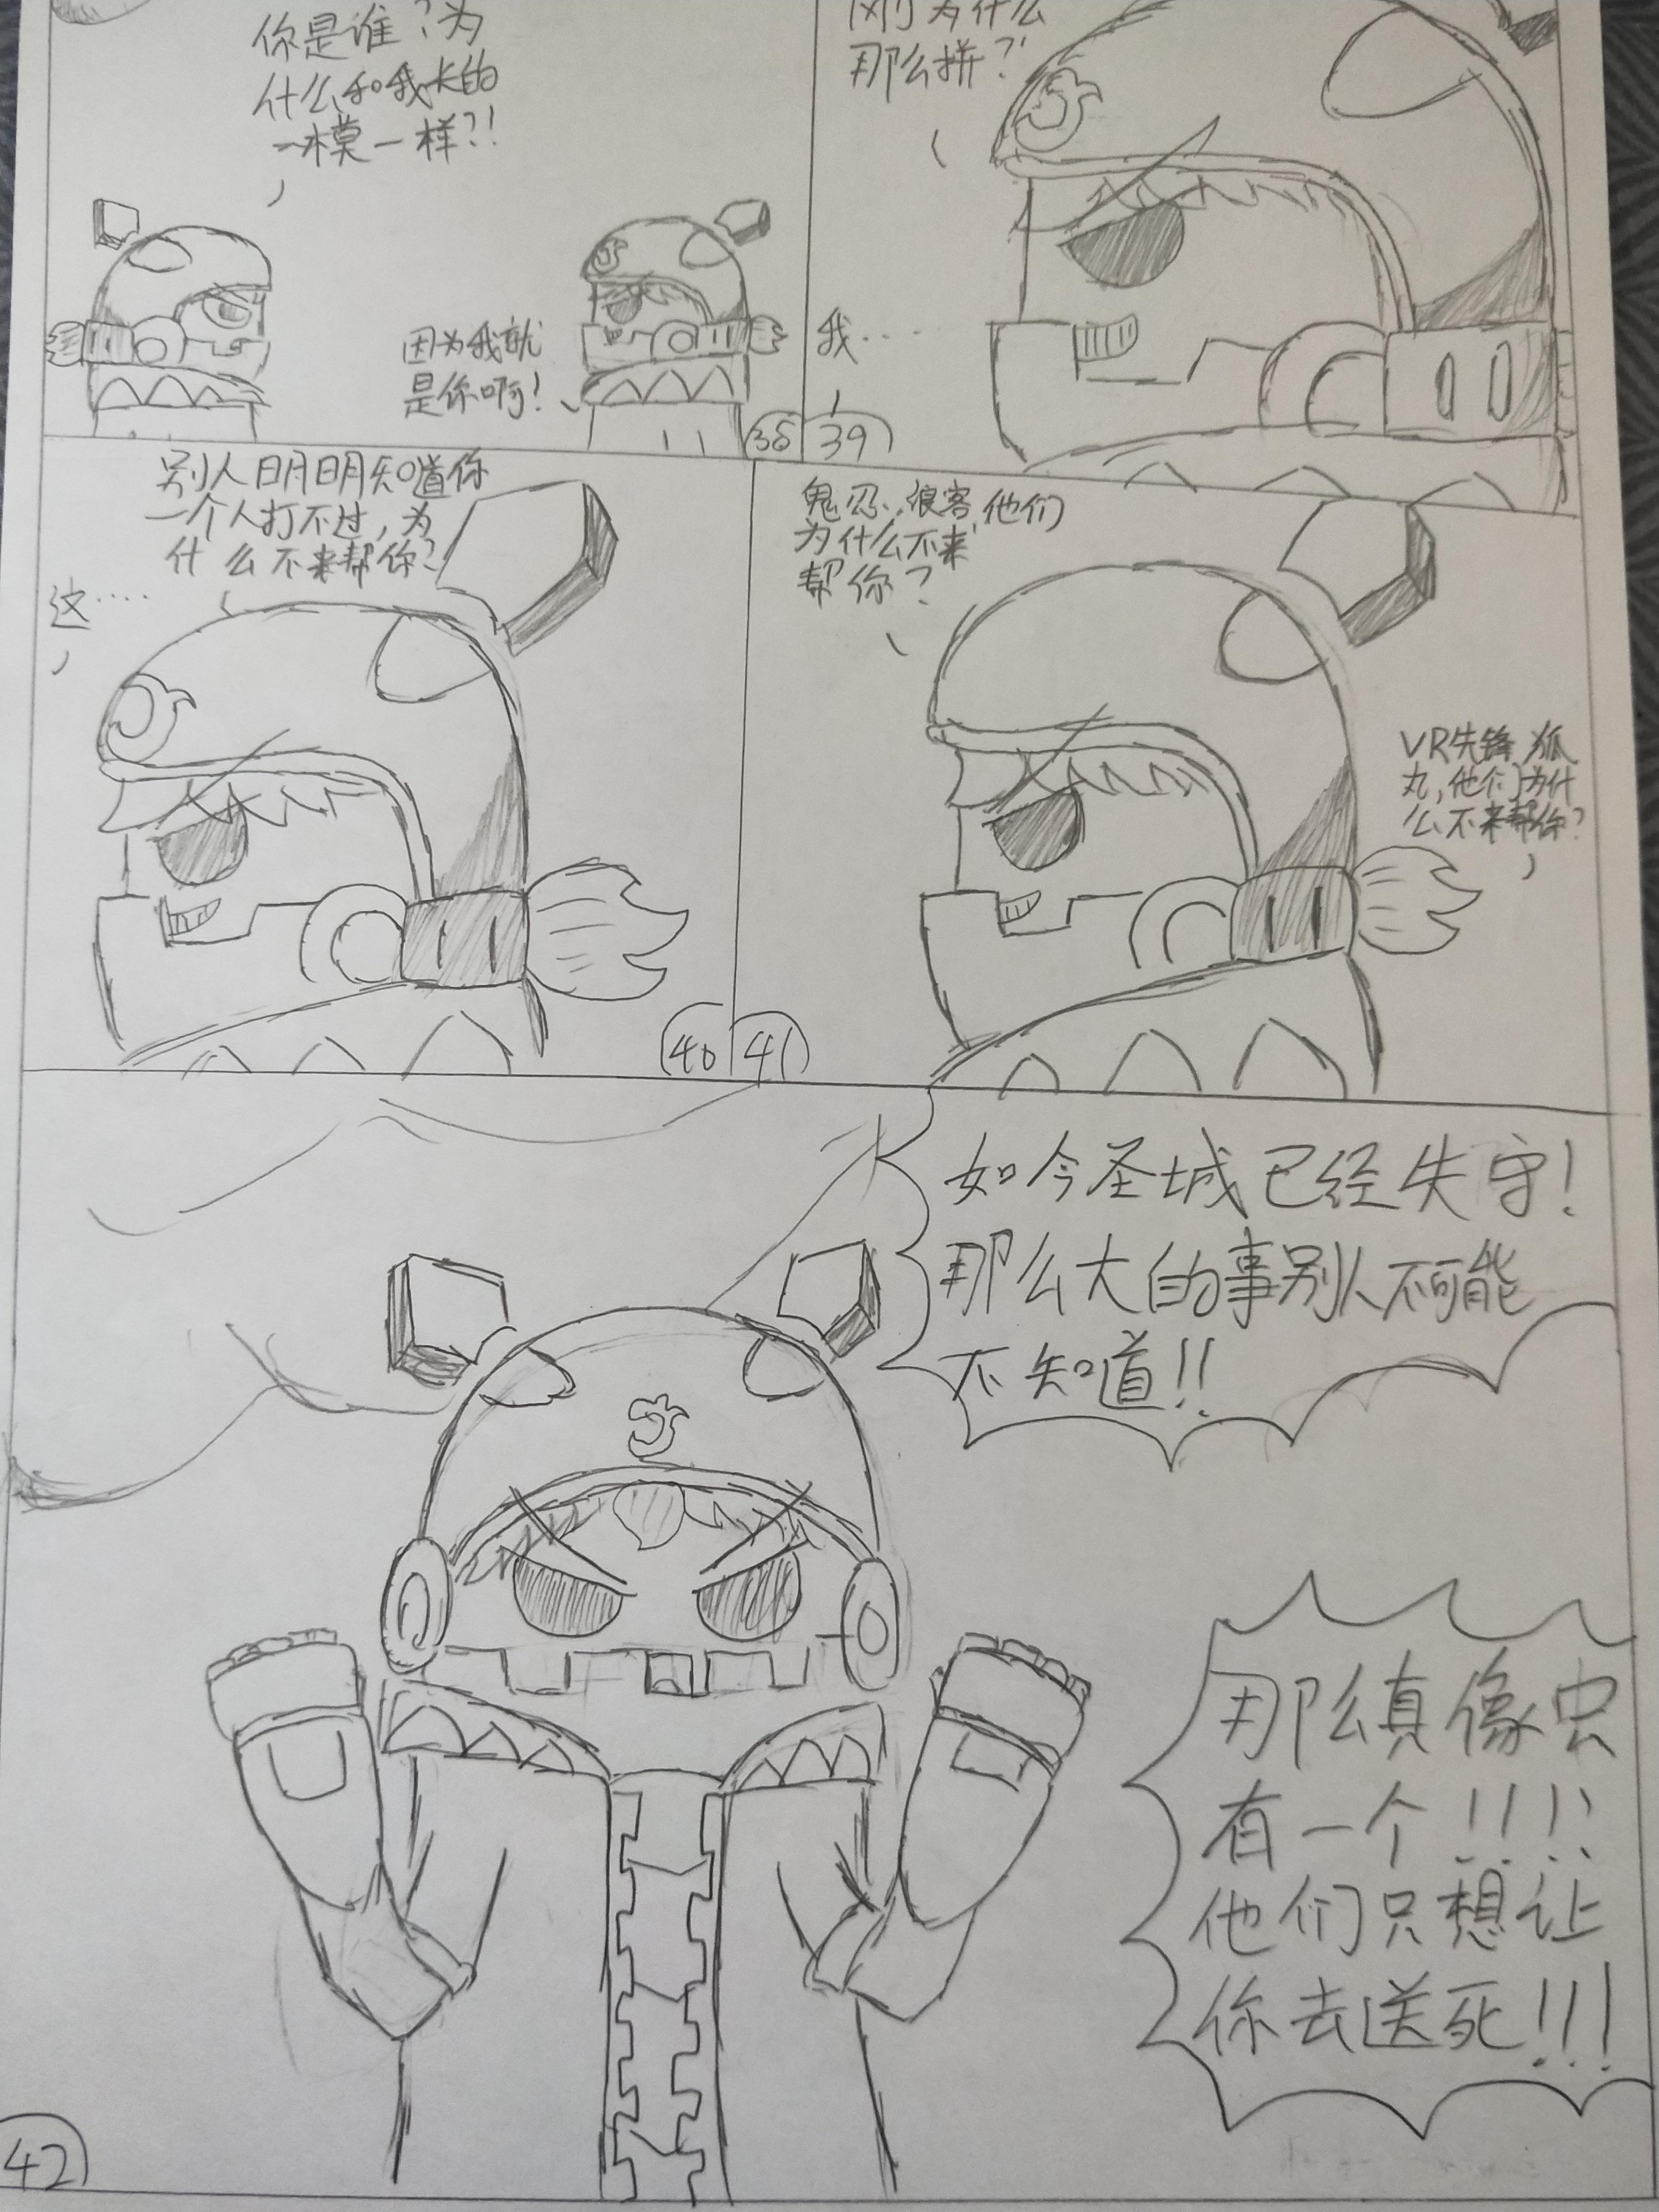 你是谁?为
什么和我长的
一模一样?!
因为我就
是你啊!
38
刚为什么
那么拼?
我····
39
别人明明知道你
一个人打不过,为
什么不来帮你?
这····
40
鬼忍、浪客他们
为什么不来
帮你?
VR先锋、狐
丸,他们为什
么不来帮你?
41
如今圣城已经失守!
那么大的事别人不可能
不知道!!
那么真像只
有一个!!!!
他们只想让
你去送死!!!
42